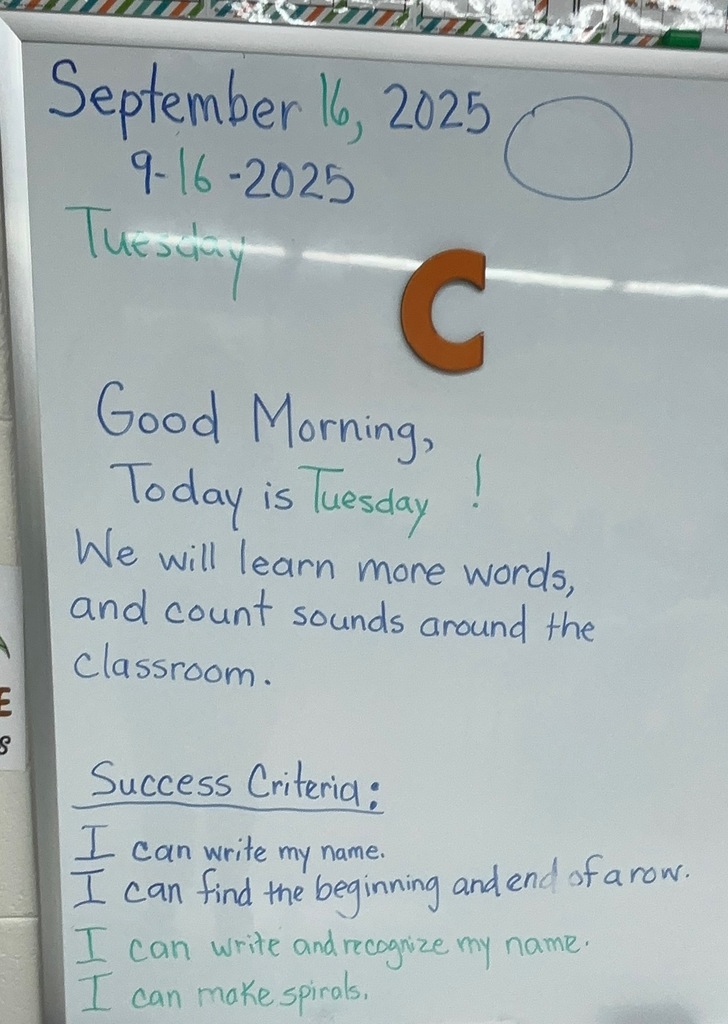 September 16, 2025
9-16-2025
Tuesday
C
Good Morning,
Today is Tuesday !
We will learn more words,
and count sounds around the
classroom.
Success Criteria:
I can write my name.
I can find the beginning and end of a row.
I can write and recognize my name.
I can make spirals.
E
S